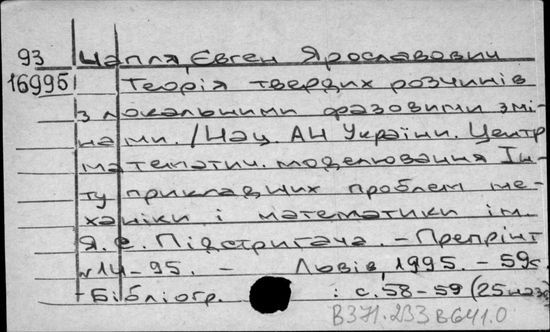 93 Чапля, Євген Ярославович
16995 Теорія твердих розчинів
з локальними фазовими змі-
нами. /Нац. АН України. Центр
математич. моделювання Ін-
ту прикладних проблем ме-
ханіки і математики ім.
Я. С. Підстригача. - Препрінт
№14-95. - Львів, 1995. - 59с.
- Бібліогр. : с. 58-59 (25 назв)
В371.233 в641.0